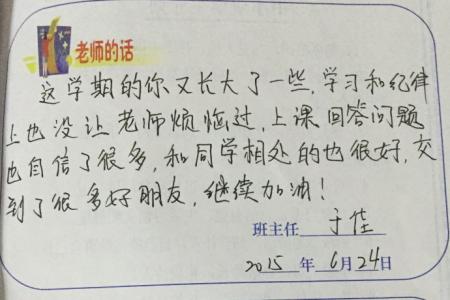 老师的话
这学期的你又长大了一些,学习和纪律
上也没让老师烦恼过,上课回答问题
也自信了很多,和同学相处的也很好,交
到了很多好朋友,继续加油!
班主任 于佳
2015年6月24日